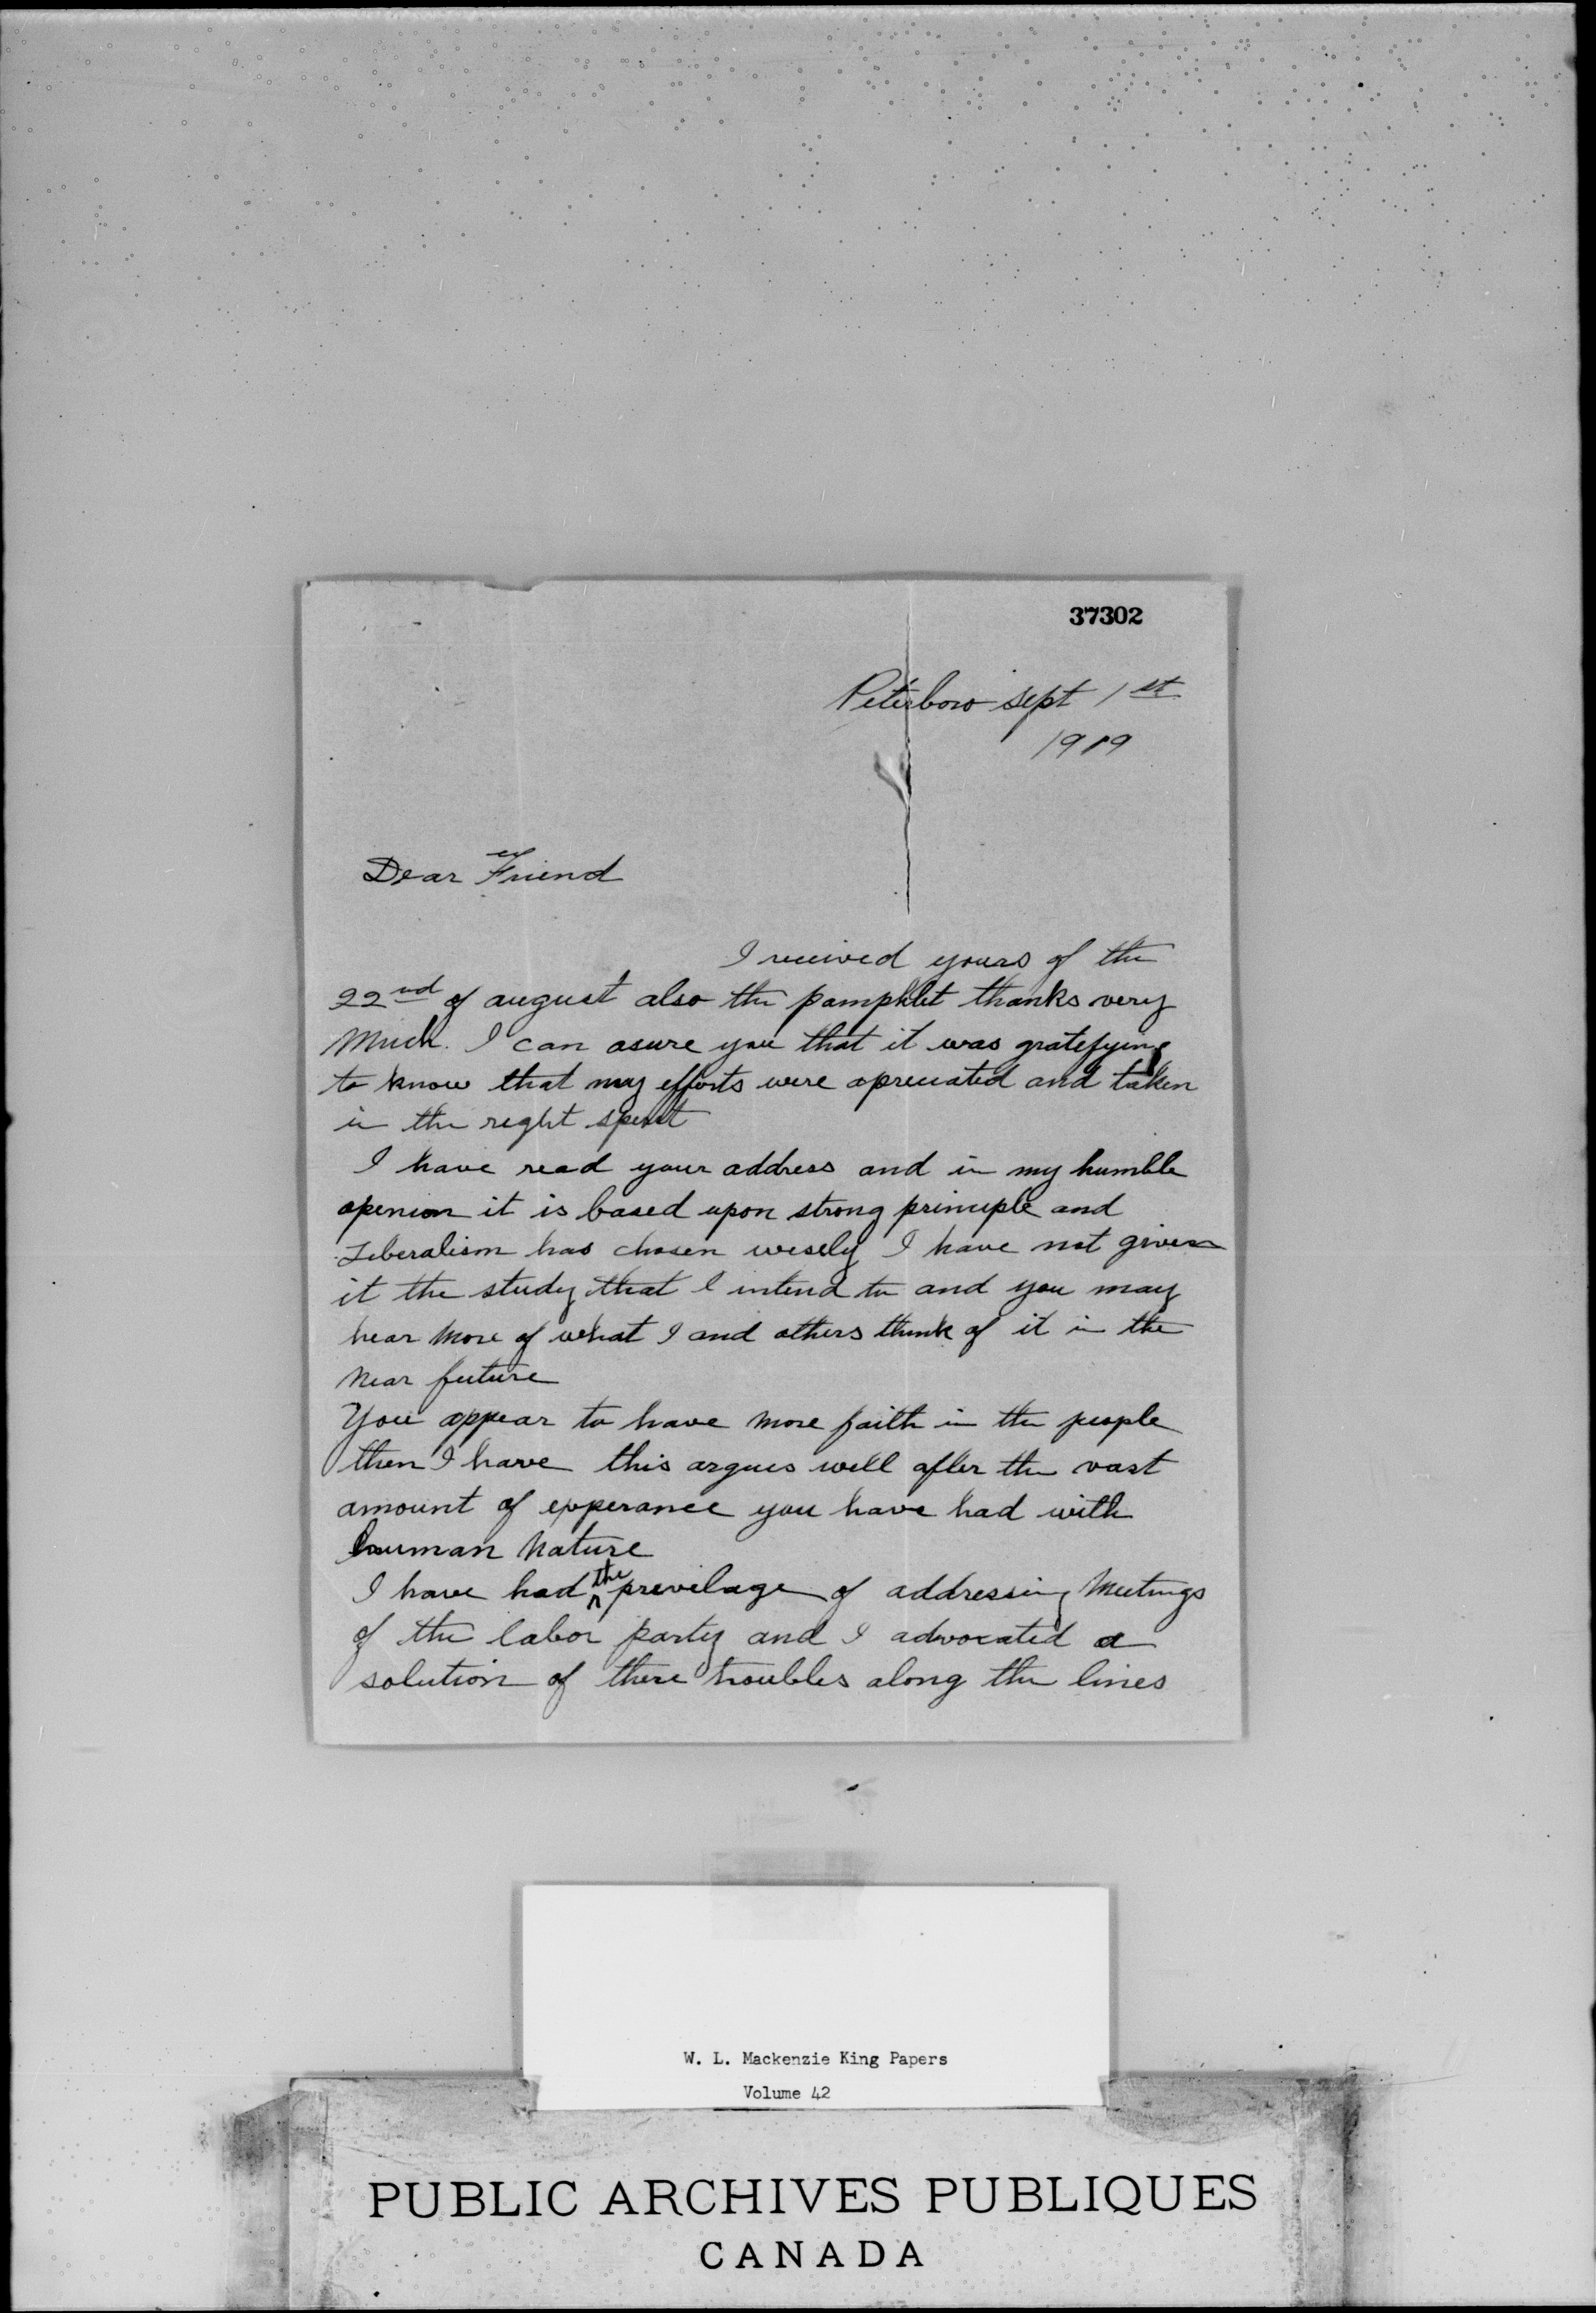 37302
Peterboro Sept 1st
1919
Dear Friend
I received yours of the
22nd of august also the pamphlet thanks very
Much. I can asure you that it was gratefying
to know that my efforts were apreciated and taken
in the reght sperit
I have read your address and in my humble
openion it is based upon strong principle and
Liberalism has chosen wesely I have not given
it the study that I intend to and you may
hear More of what I and others think of it in the
Near future
You appear to have More faith in the people
then I have this argues well after the vast
amount of experance you have had with
human Nature
I have had the prevelage of addressing Meetings
of the labor party and I advocated a
solution of there troubles along the lines
W. L. Mackenzie King Papers
Volume 42
PUBLIC ARCHIVES PUBLIQUES
CANADA